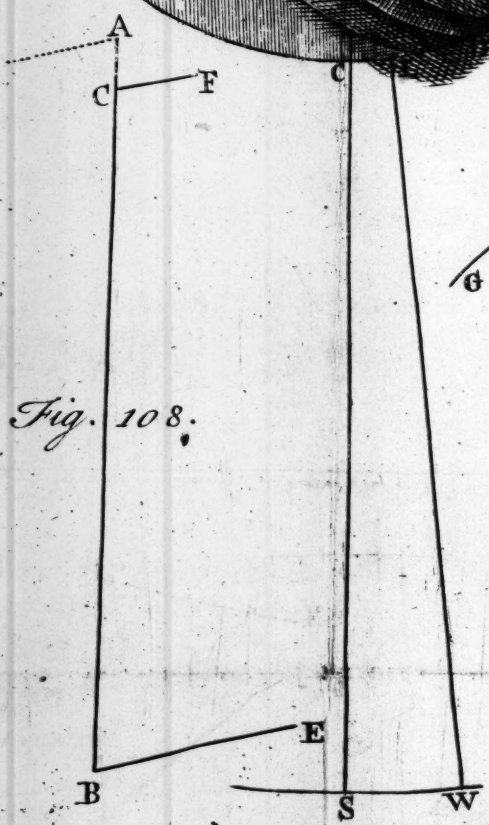 A
C F
C
G
Fig. 108.
E
B
S W